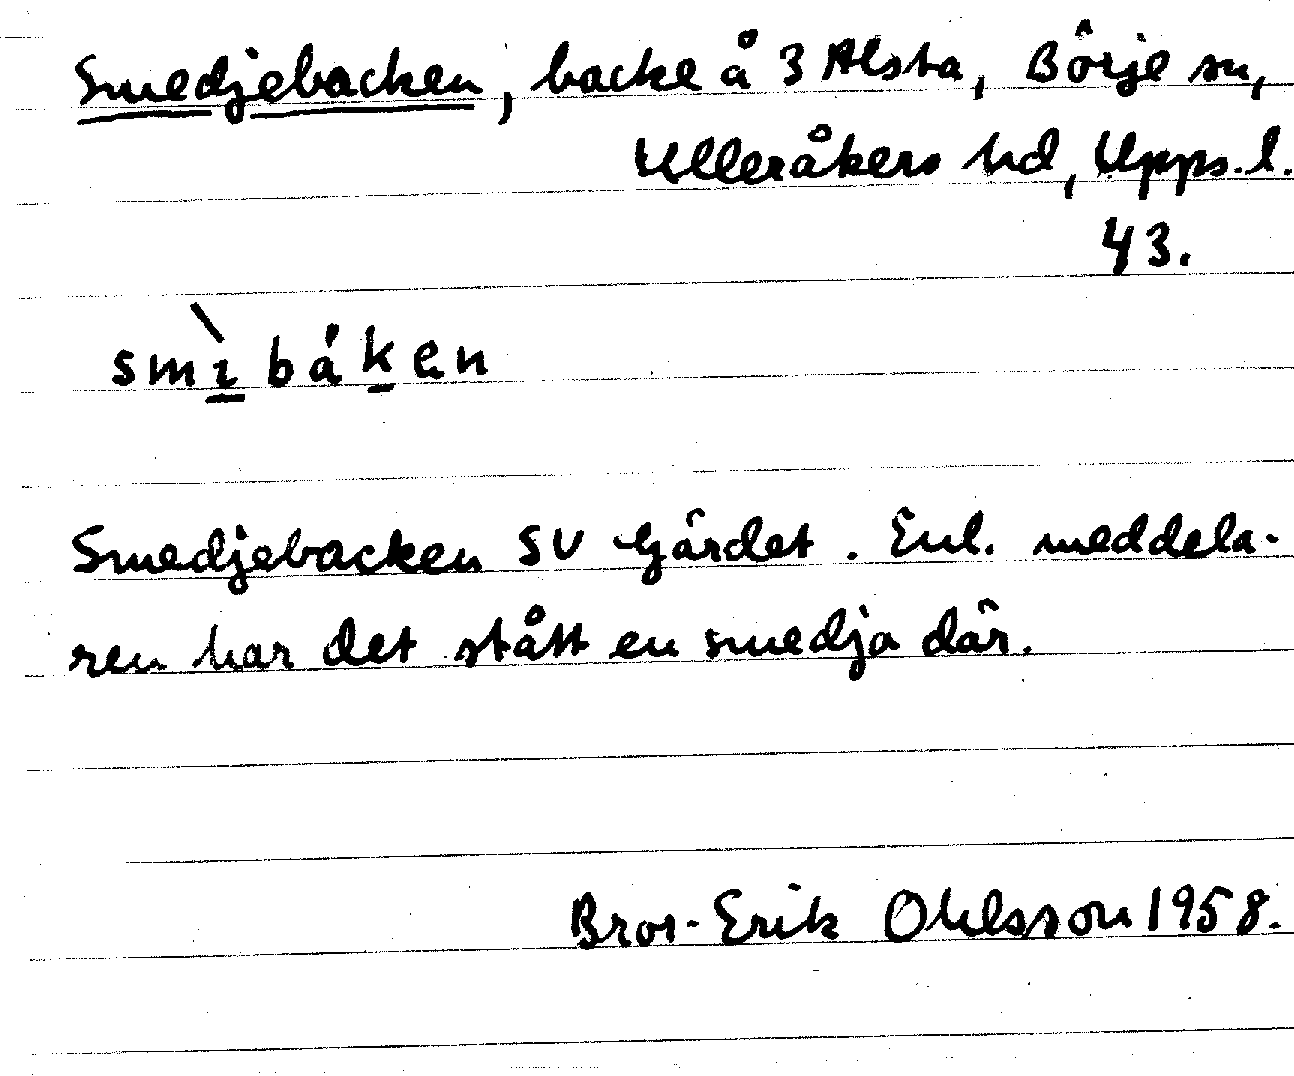 Smedjebacken, backe å 3 Alsta, Börje sn,
Ulleråkers hd, Upps. l.
43.
smì bák en
Smedjebacken SV Gärdet. Enl. meddela-
ren har det stått en smedja där.
Bror-Erik Ohlsson 1958.